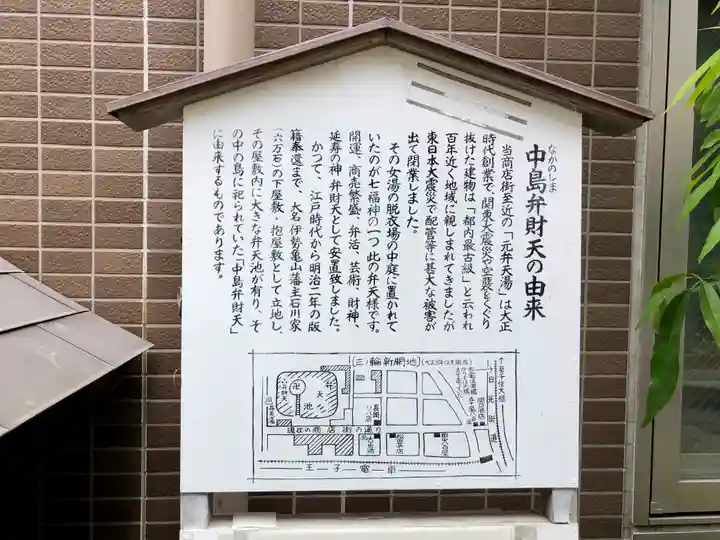 なかのしま
中島弁財天の由来
当商店街至近の「元弁天湯」は大正
時代創業で、関東大震災や空襲をくぐり
抜けた建物は「都内最古級」と云われ
百年近く地域に親しまれてきましたが
東日本大震災で配管等に甚大な被害が
出て閉業しました。
その女湯の脱衣場の中庭に置かれて
いたのが七福神の一つ此の弁天様です。
開運、商売繁盛、弁活、芸術、財神、
延寿の神 弁財天として安置致しました。
かつて、江戸時代から明治二年の版
籍奉還まで、大名伊勢亀山藩主石川家
(六万石)の下屋敷・抱屋敷として立地し、
その屋敷内に大きな弁天池が有り、そ
の中の島に祀られていた「中島弁財天」
に由来するものであります。
(三ノ輪新開地)
弁天池
卍
現在の商店街の通り
日光街道
王子電車